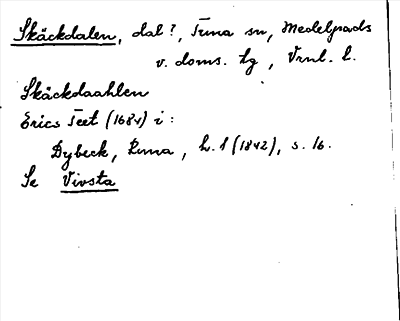 Skäckdalen, dal?, Tuna sn, Medelpads
v. doms. tg, Vrnl. l.
Skäckdaahlen
Erics Teet (1684) i:
Dybeck, Runa, h. 1 (1842), s. 16.
Se Vivsta